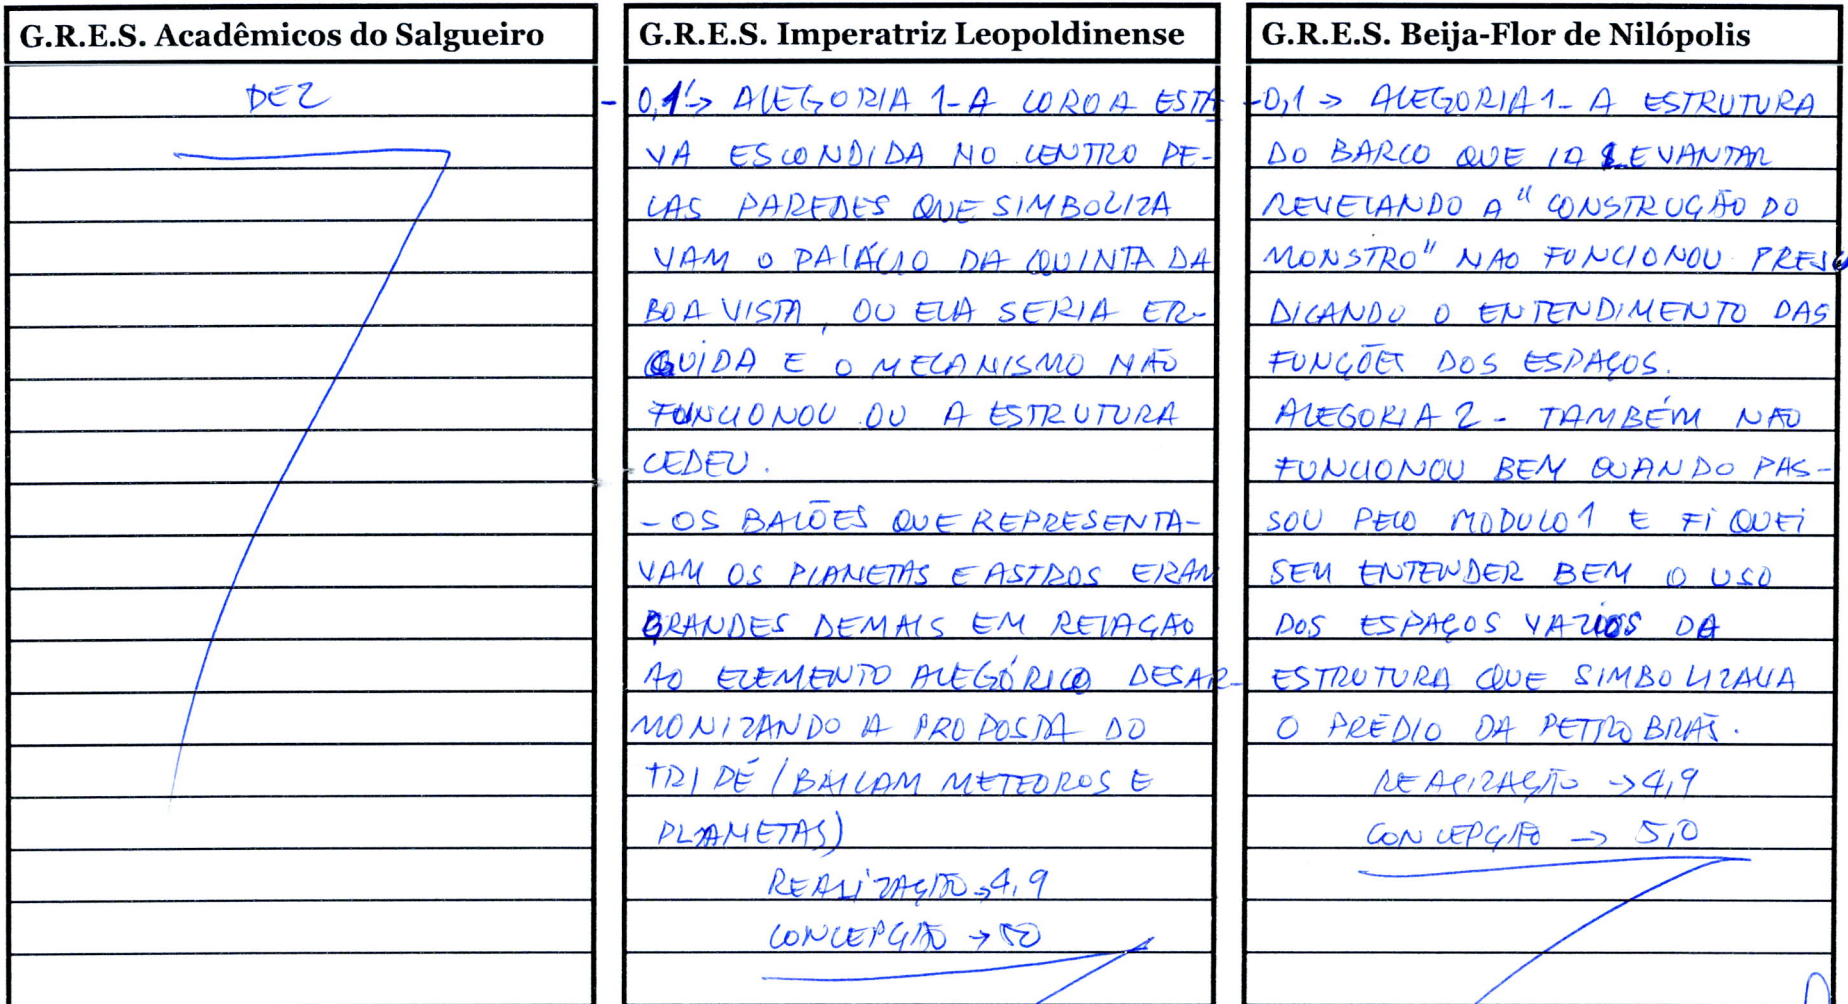 G.R.E.S. Acadêmicos do Salgueiro
DEZ
G.R.E.S. Imperatriz Leopoldinense
- 0,1 -> ALEGORIA 1 - A COROA ESTA
VA ESCONDIDA NO CENTRO PE-
LAS PAREDES QUE SIMBOLIZA
VAM O PALÁCIO DA QUINTA DA
BOA VISTA, OU ELA SERIA ER-
GUIDA E O MECANISMO NÃO
FUNCIONOU OU A ESTRUTURA
CEDEU.
- OS BALÕES QUE REPRESENTA-
VAM OS PLANETAS E ASTROS ERAM
GRANDES DEMAIS EM RELAÇÃO
AO ELEMENTO ALEGÓRICO DESAR-
MONIZANDO A PROPOSTA DO
TRIPÉ (BAILAM METEOROS E
PLANETAS)
REALIZAÇÃO -> 4,9
CONCEPÇÃO -> 50
G.R.E.S. Beija-Flor de Nilópolis
-0,1 -> ALEGORIA 1 - A ESTRUTURA
DO BARCO QUE IA LEVANTAR
REVELANDO A "CONSTRUÇÃO DO
MONSTRO" NAO FUNCIONOU PREJU
DICANDO O ENTENDIMENTO DAS
FUNÇÕES DOS ESPAÇOS.
ALEGORIA 2 - TAMBÉM NÃO
FUNCIONOU BEM QUANDO PAS-
SOU PELO MODULO 1 E FIQUEI
SEM ENTENDER BEM O USO
DOS ESPAÇOS VAZIOS DA
ESTRUTURA QUE SIMBOLIZAVA
O PRÉDIO DA PETROBRÁS.
REALIZAÇÃO -> 4,9
CONCEPÇÃO -> 5,0